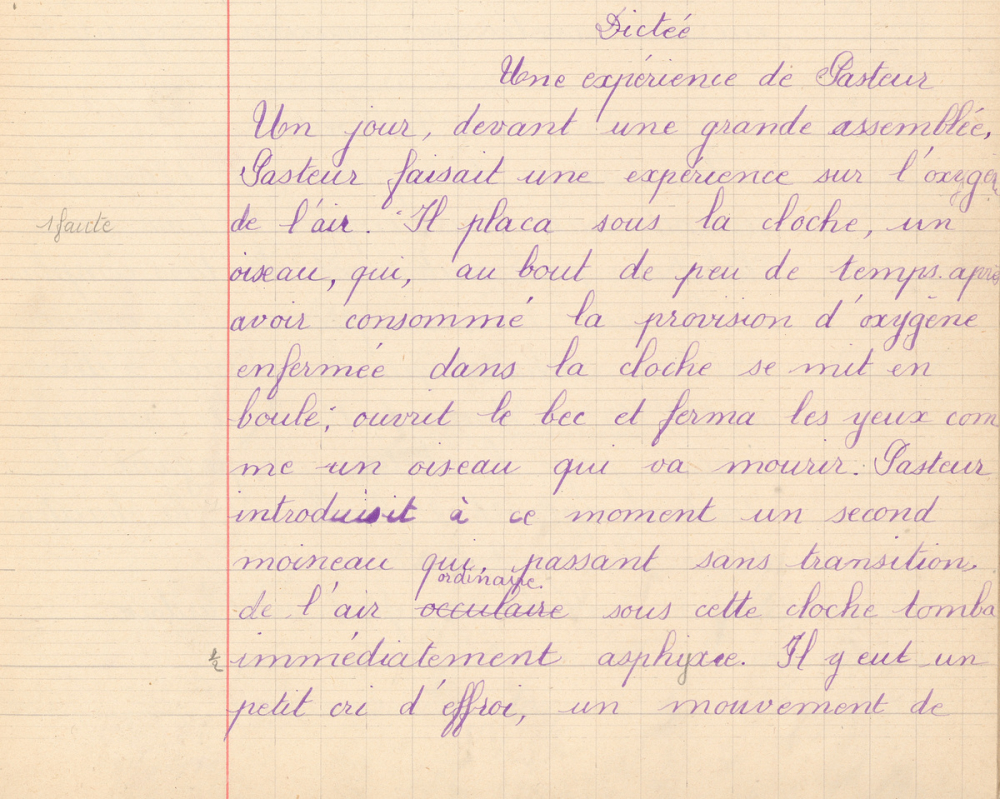 Dictée
Une expérience de Pasteur
Un jour, devant une grande assemblée,
Pasteur faisait une expérience sur l'oxygèn
1 faute
de l'air. Il placa sous la cloche, un
oiseau, qui, au bout de peu de temps. après
avoir consommé la provision d'oxygène
enfermée dans la cloche se mit en
boule; ouvrit le bec et ferma les yeux com
me un oiseau qui va mourir. Pasteur
introduisit à ce moment un second
moineau qui, passant sans transition,
ordinaire.
de l'air occulaire sous cette cloche tomba
½ immédiatement asphyxie. Il y eut un
petit cri d'effroi, un mouvement de